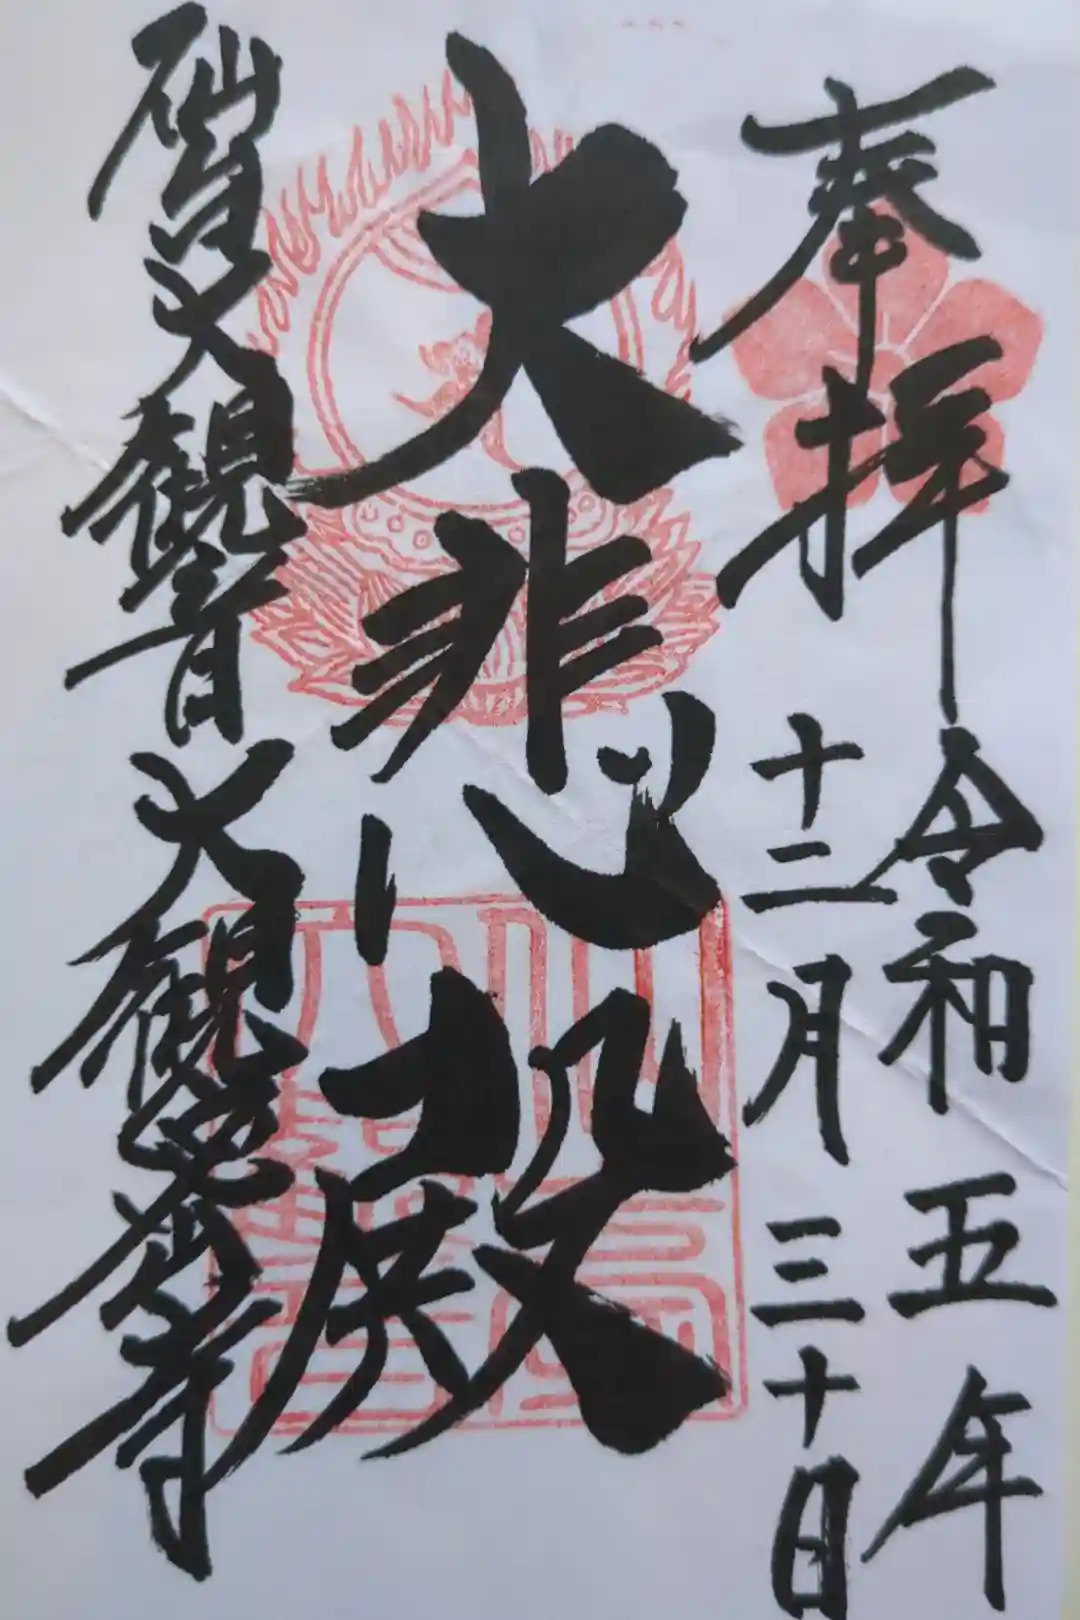 奉拝　令和五年
十二月三十日
大悲殿
仙台大観音　大観密寺